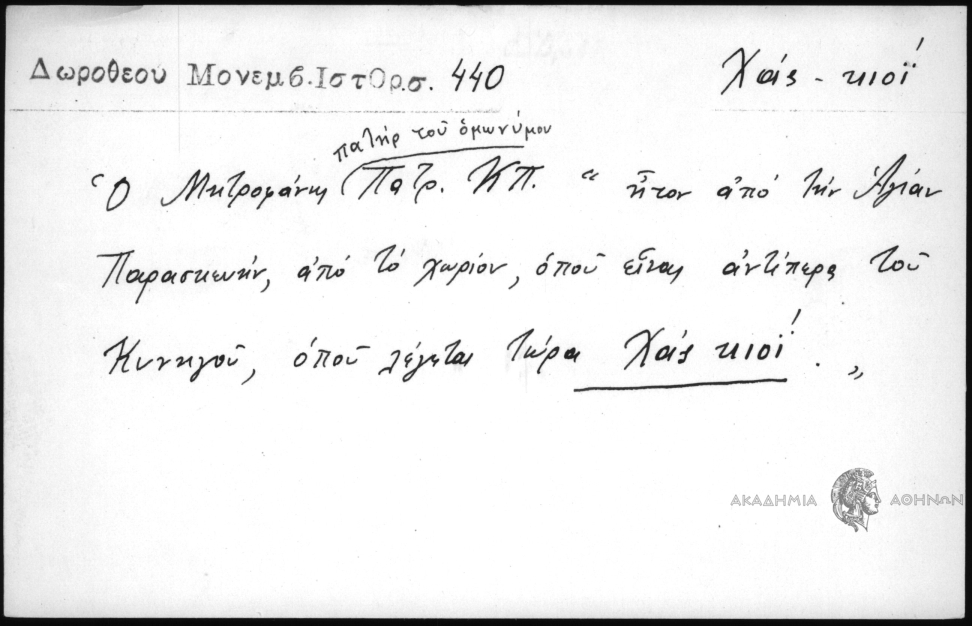 Δωροθεου Μονεμβ.ΙστΟρσ. 440 Χάς - κιοΐ
πατὴρ τοῦ ὁμωνύμου
Ὁ Μητροφάνης (Πατρ. ΚΠ. “ ἦτον ἀπό τὴν Ἁγίαν
Παρασκευὴν, ἀπό τό χωρίον, ὁποῦ εἶναι ἀντίπερα τοῦ
Κυνηγοῦ, ὁποῦ λέγεται τώρα Χάς κιοΐ . „
ΑΚΑΔΗΜΙΑ ΑΘΗΝΩΝ